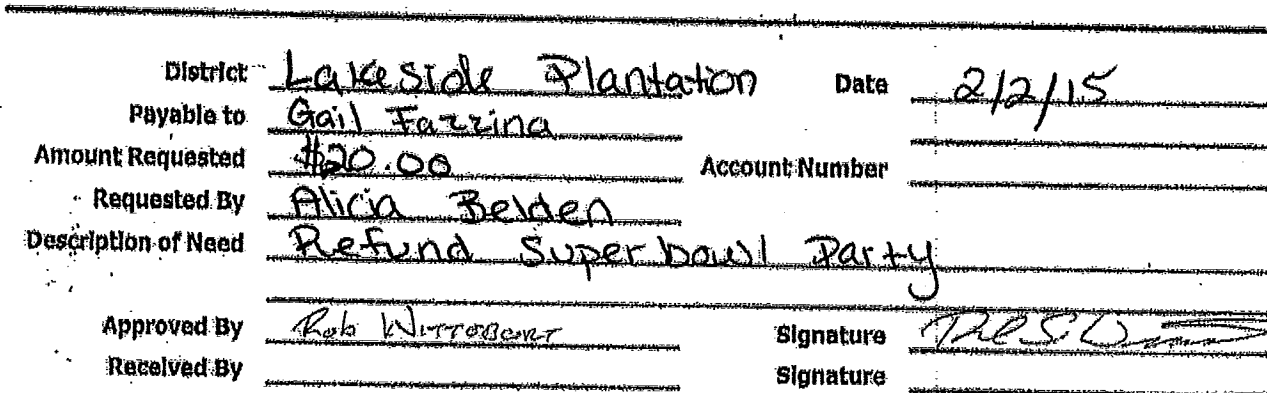 District Lakeside Plantation Date 2/2/15
Payable to Gail Fazzina
Amount Requested $20.00 Account Number
Requested By Alicia Belden
Description of Need Refund Superbowl Party
Approved By Rob Signature
Received By Signature